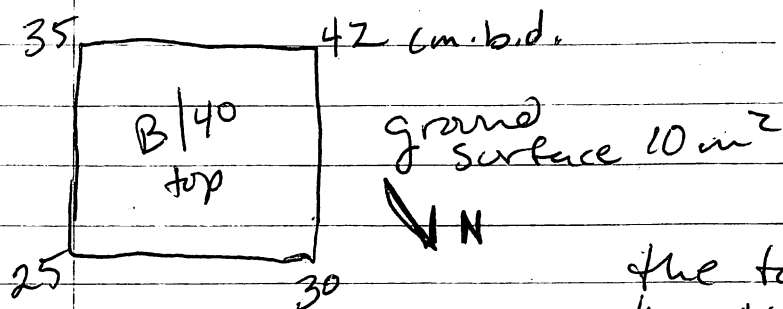 35 42 cm.b.d.
B/40
top
ground
surface 10 m²
N
25 30
the